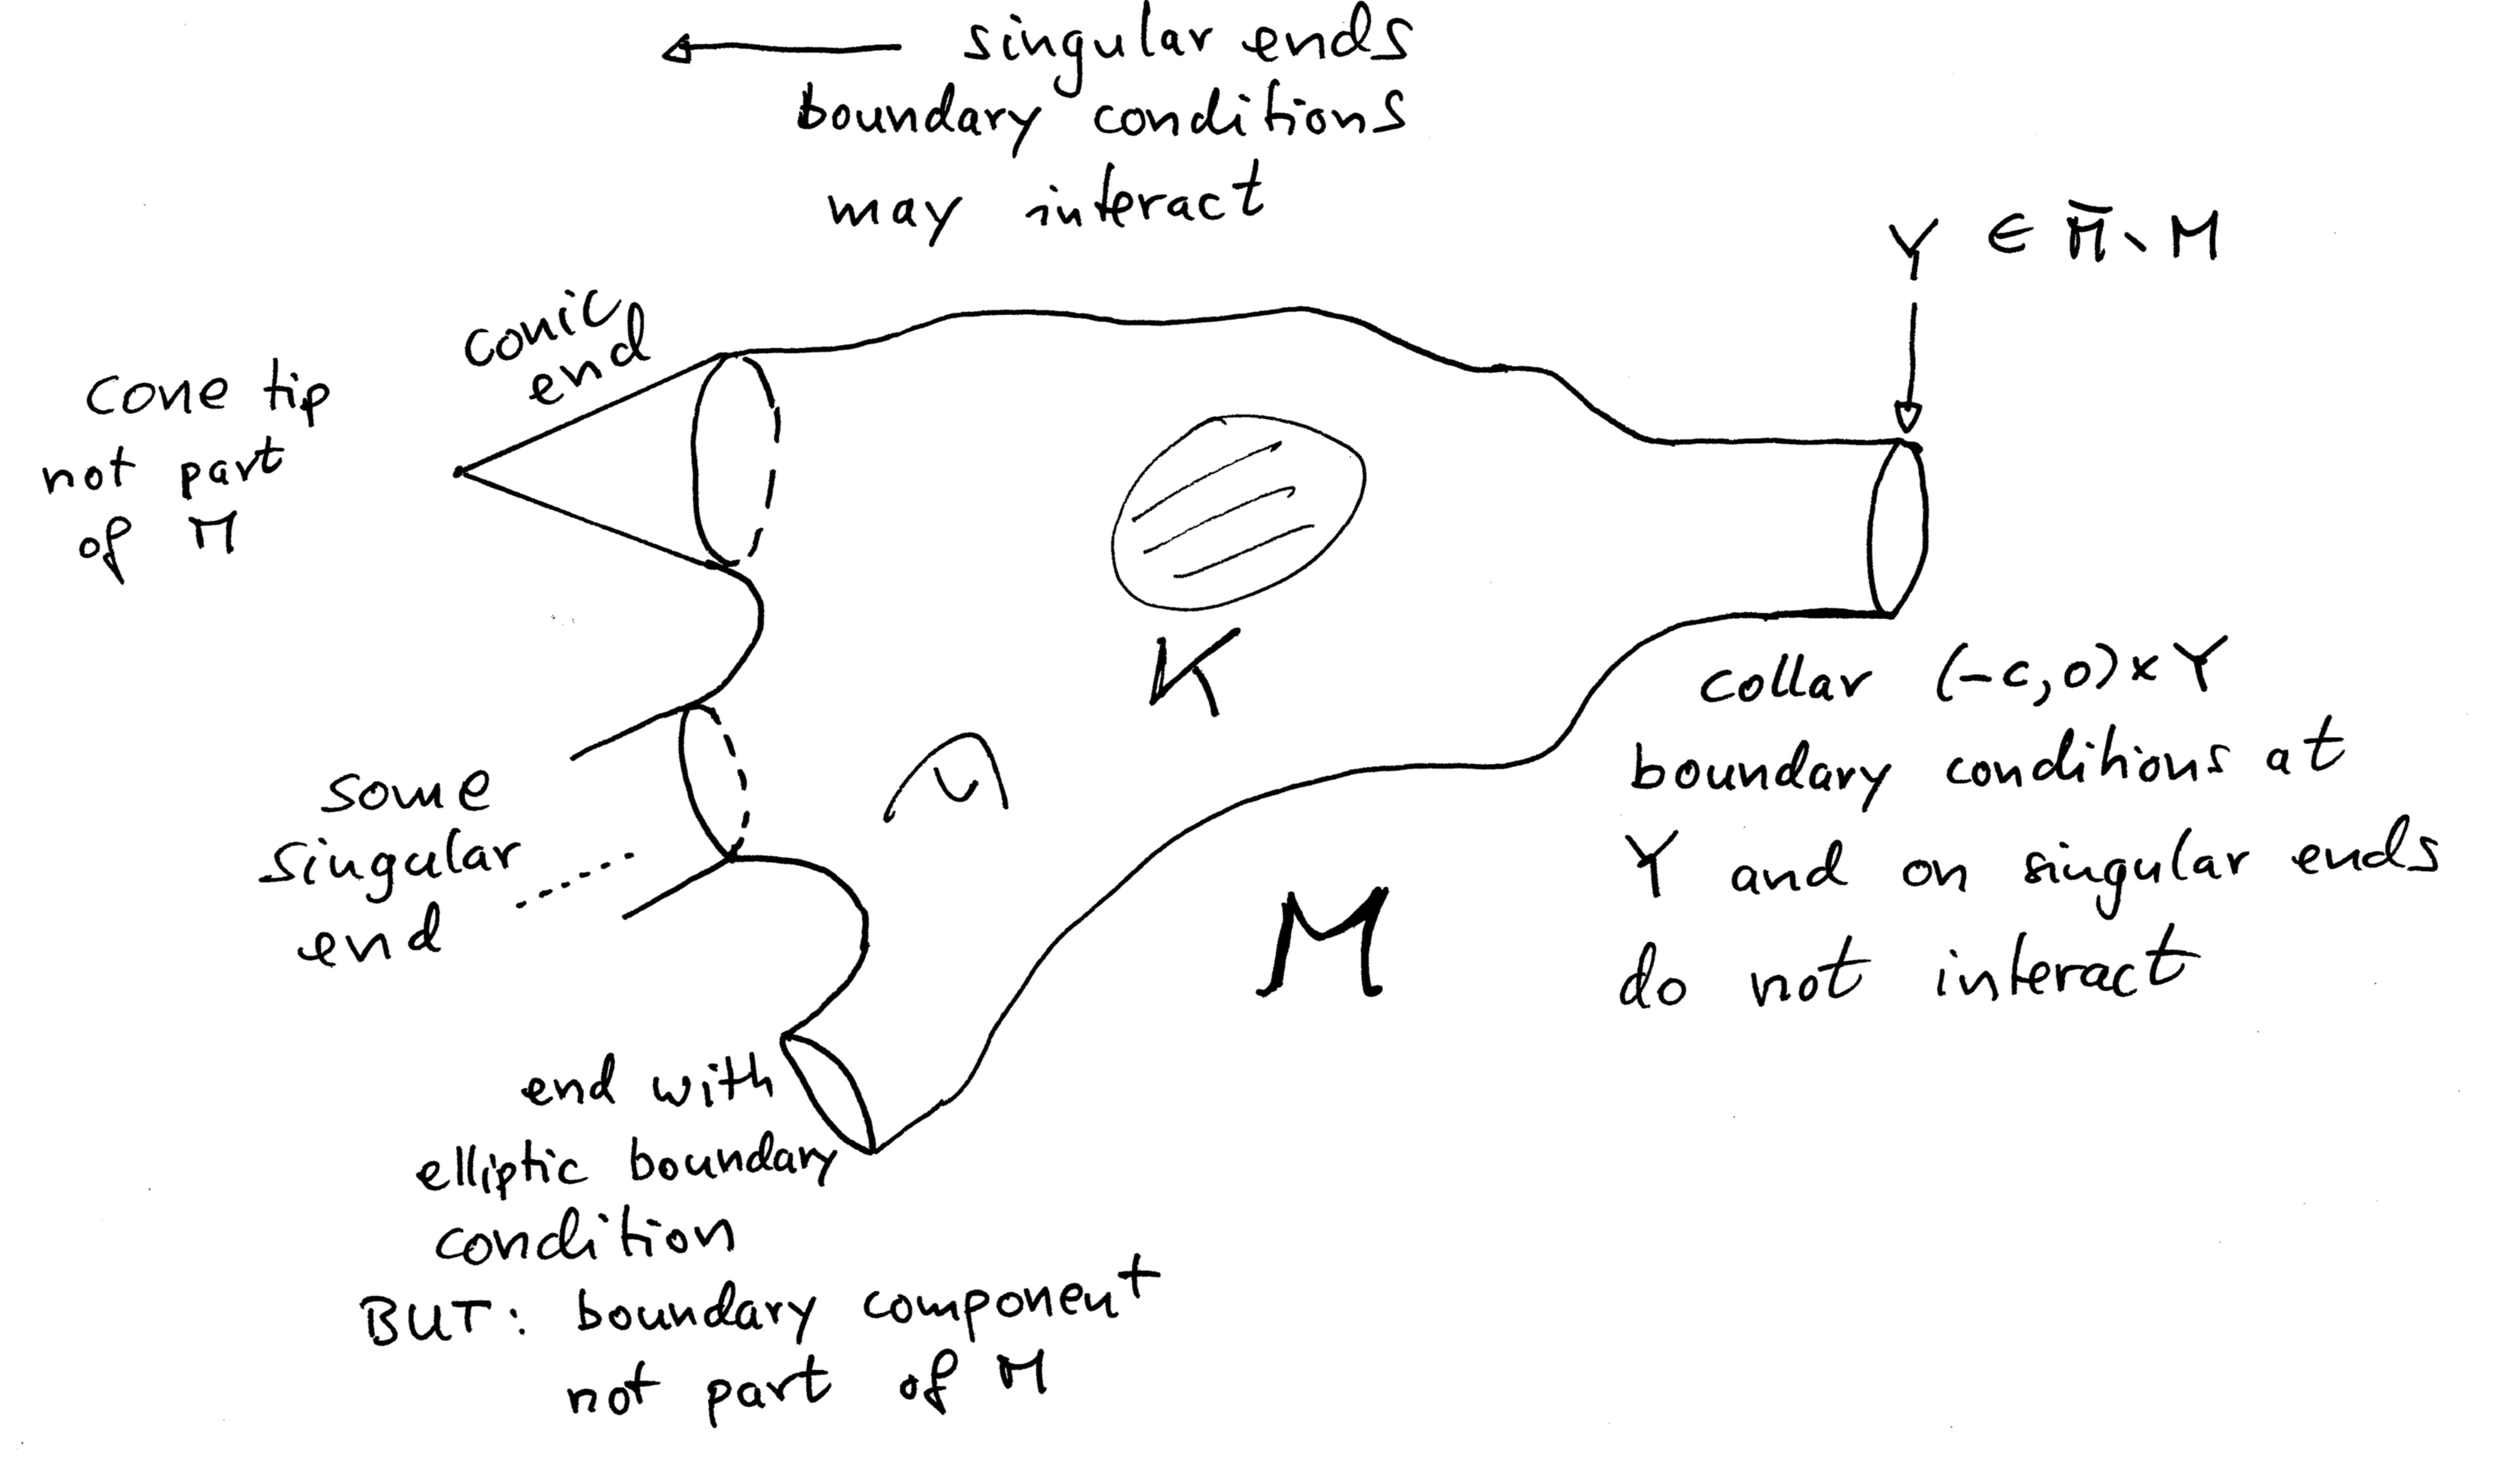 singular ends
boundary conditions
may interact
Y ∈ M̄ \ M
conic
end
cone tip
not part
of M
K
collar (-c,0)×Y
boundary conditions at
Y and on singular ends
do not interact
some
singular
end
M
end with
elliptic boundary
condition
BUT: boundary component
not part of M